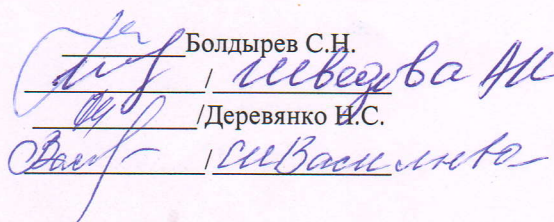 Болдырев С.Н.
/ Шведова АН
/Деревянко Н.С.
/ Васильева